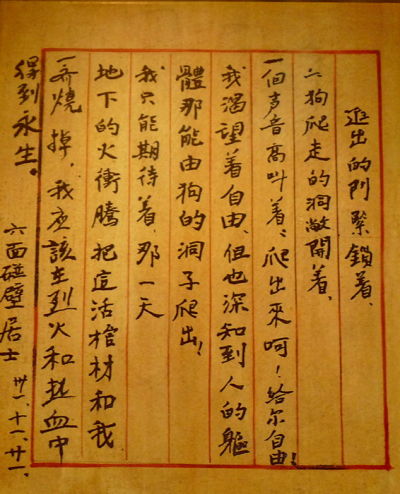 進出的門緊鎖着、
为狗爬走的洞敞開着、
一個声音高叫着、爬出來呵！給尔自由！
我渴望着自由、但也深知到人的軀
體那能由狗的洞子爬出！
我只能期待着、那一天
地下的火衝騰把這活棺材和我
一齊燒掉，我應該在烈火和热血中
得到永生。
六面碰壁居士 卅一、十一、廿一、